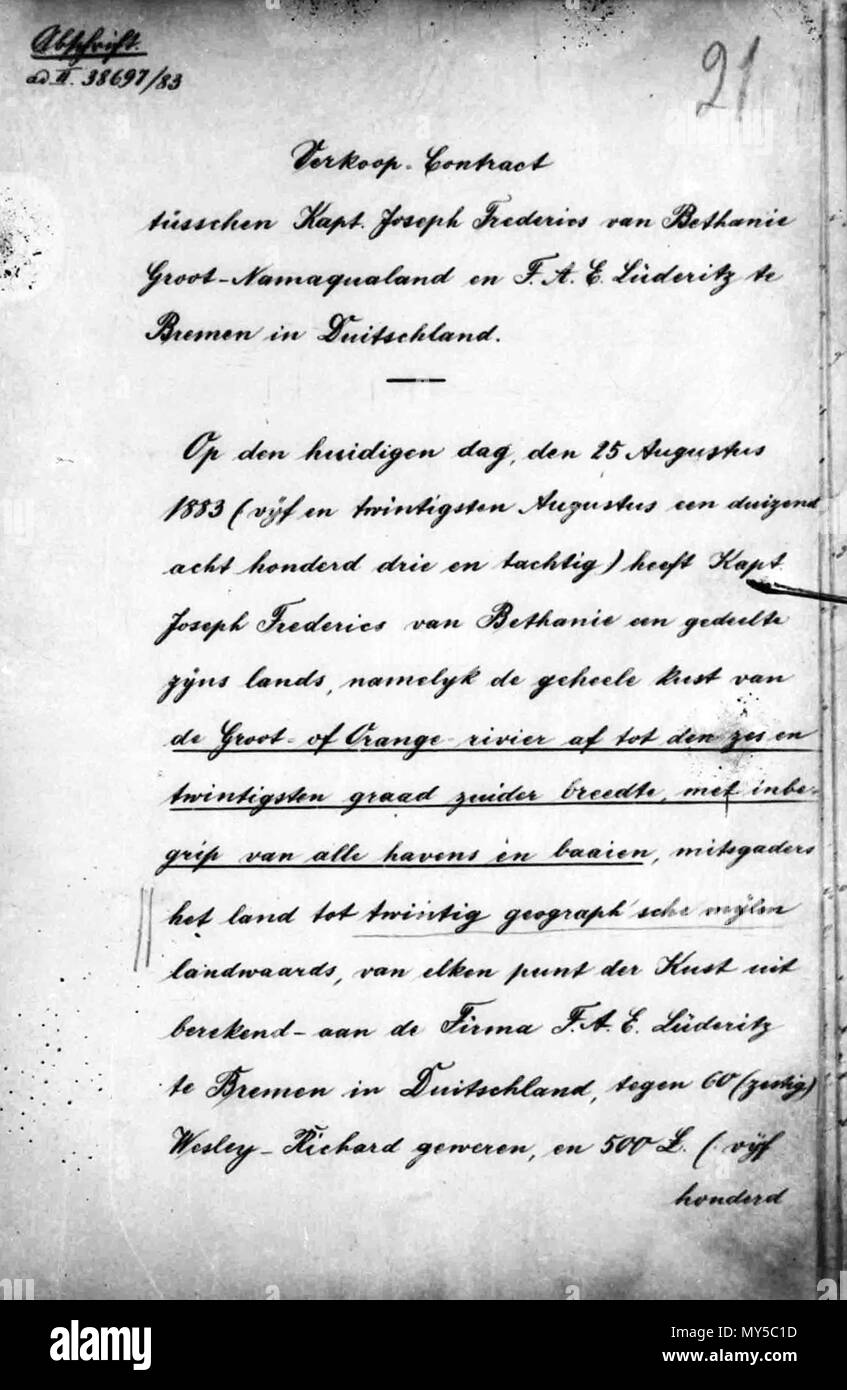 Abschrift.
ad II. 38697/83
21
Verkoop-Contract
tüsschen Kapt. Joseph Frederics van Bethanie
Groot-Namaqualand en F. A. E. Lüderitz te
Bremen in Duitschland.
Op den huidigen dag, den 25 Augustus
1883 (vÿf en twintigsten Augustus een duizend
acht honderd drie en tachtig) heeft Kapt.
Joseph Frederics van Bethanie een gedeelte
zÿns lands, namelyk de geheele kust van
de Groot- of Orange-rivier af tot den zes en
twintigsten graad zuider breedte, met inbe-
grip van alle havens en baaien, mitsgaders
het land tot twintig geograph'sche mÿlen
landwaards, van elken punt der Kust uit
berekend - aan de Firma F. A. E. Lüderitz
te Bremen in Duitschland, tegen 60 (zestig)
Wesley-Richard geweren, en 500 £. (: vÿf
honderd
alamy
Image ID: MY5C1D
www.alamy.com